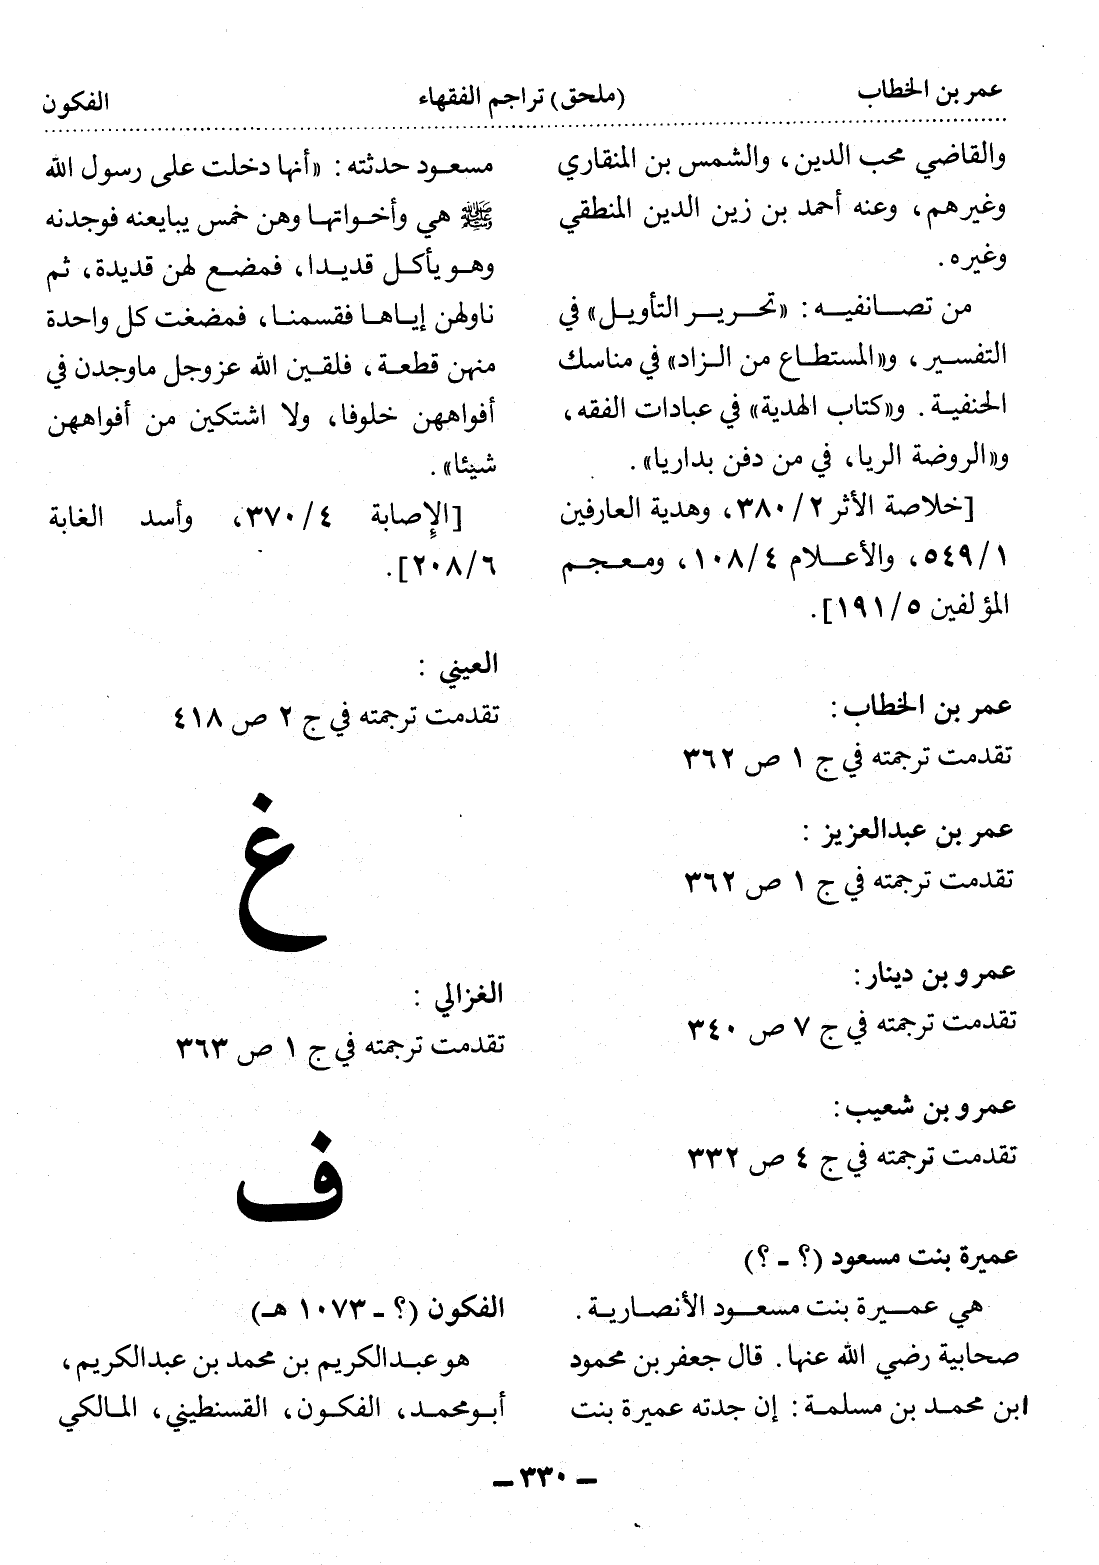 عمر بن الخطاب
(ملحق) تراجم الفقهاء
الفكون
والقاضي محب الدين، والشمس بن المنقاري
وغيرهم، وعنه أحمد بن زين الدين المنطقي
وغيره.
من تصانفيه: «تحرير التأويل» في
التفسير، و«المستطاع من الزاد» في مناسك
الحنفية. و«كتاب الهدية» في عبادات الفقه،
و«الروضة الريا، في من دفن بداريا».
[خلاصة الأثر ٢/ ٣٨٠، وهدية العارفين
١/ ٥٤٩، والأعلام ٤/ ١٠٨، ومعجم
المؤلفين ٥/ ١٩١].
عمر بن الخطاب:
تقدمت ترجمته في ج ١ ص ٣٦٢
عمر بن عبدالعزيز :
تقدمت ترجمته في ج ١ ص ٣٦٢
عمرو بن دينار:
تقدمت ترجمته في ج ٧ ص ٣٤٠
عمرو بن شعيب:
تقدمت ترجمته في ج ٤ ص ٣٣٢
عميرة بنت مسعود (؟ ـ ؟)
هي عميرة بنت مسعود الأنصارية.
صحابية رضي الله عنها. قال جعفر بن محمود
ابن محمد بن مسلمة: إن جدته عميرة بنت
مسعود حدثته: «أنها دخلت على رسول الله
ﷺ هي وأخواتها وهن خمس يبايعنه فوجدنه
وهو يأكل قديدا، فمضع لهن قديدة، ثم
ناولهن إياها فقسمنا، فمضغت كل واحدة
منهن قطعة، فلقين الله عزوجل ماوجدن في
أفواههن خلوفا، ولا اشتكين من أفواههن
شيئا».
[الإصابة ٤/ ٣٧٠، وأسد الغابة
٦/ ٢٠٨].
العيني :
تقدمت ترجمته في ج ٢ ص ٤١٨
غ
الغزالي :
تقدمت ترجمته في ج ١ ص ٣٦٣
ف
الفكون (؟ ـ ١٠٧٣ هـ)
هو عبدالكريم بن محمد بن عبدالكريم،
أبومحمد، الفكون، القسنطيني، المالكي
ـ ٣٣٠ ـ